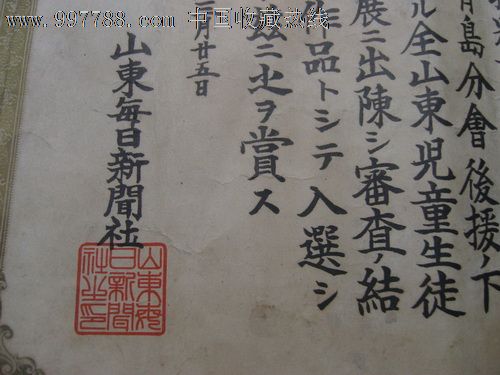 www.997788.com 中国收藏热线
島分會後援ノ下
ル全山東児童生徒
展ニ出陳シ審査ノ結
作品トシテ入選シ
ニ之ヲ賞ス
月廿五日
山東每日新聞社
山東每日新聞社之印